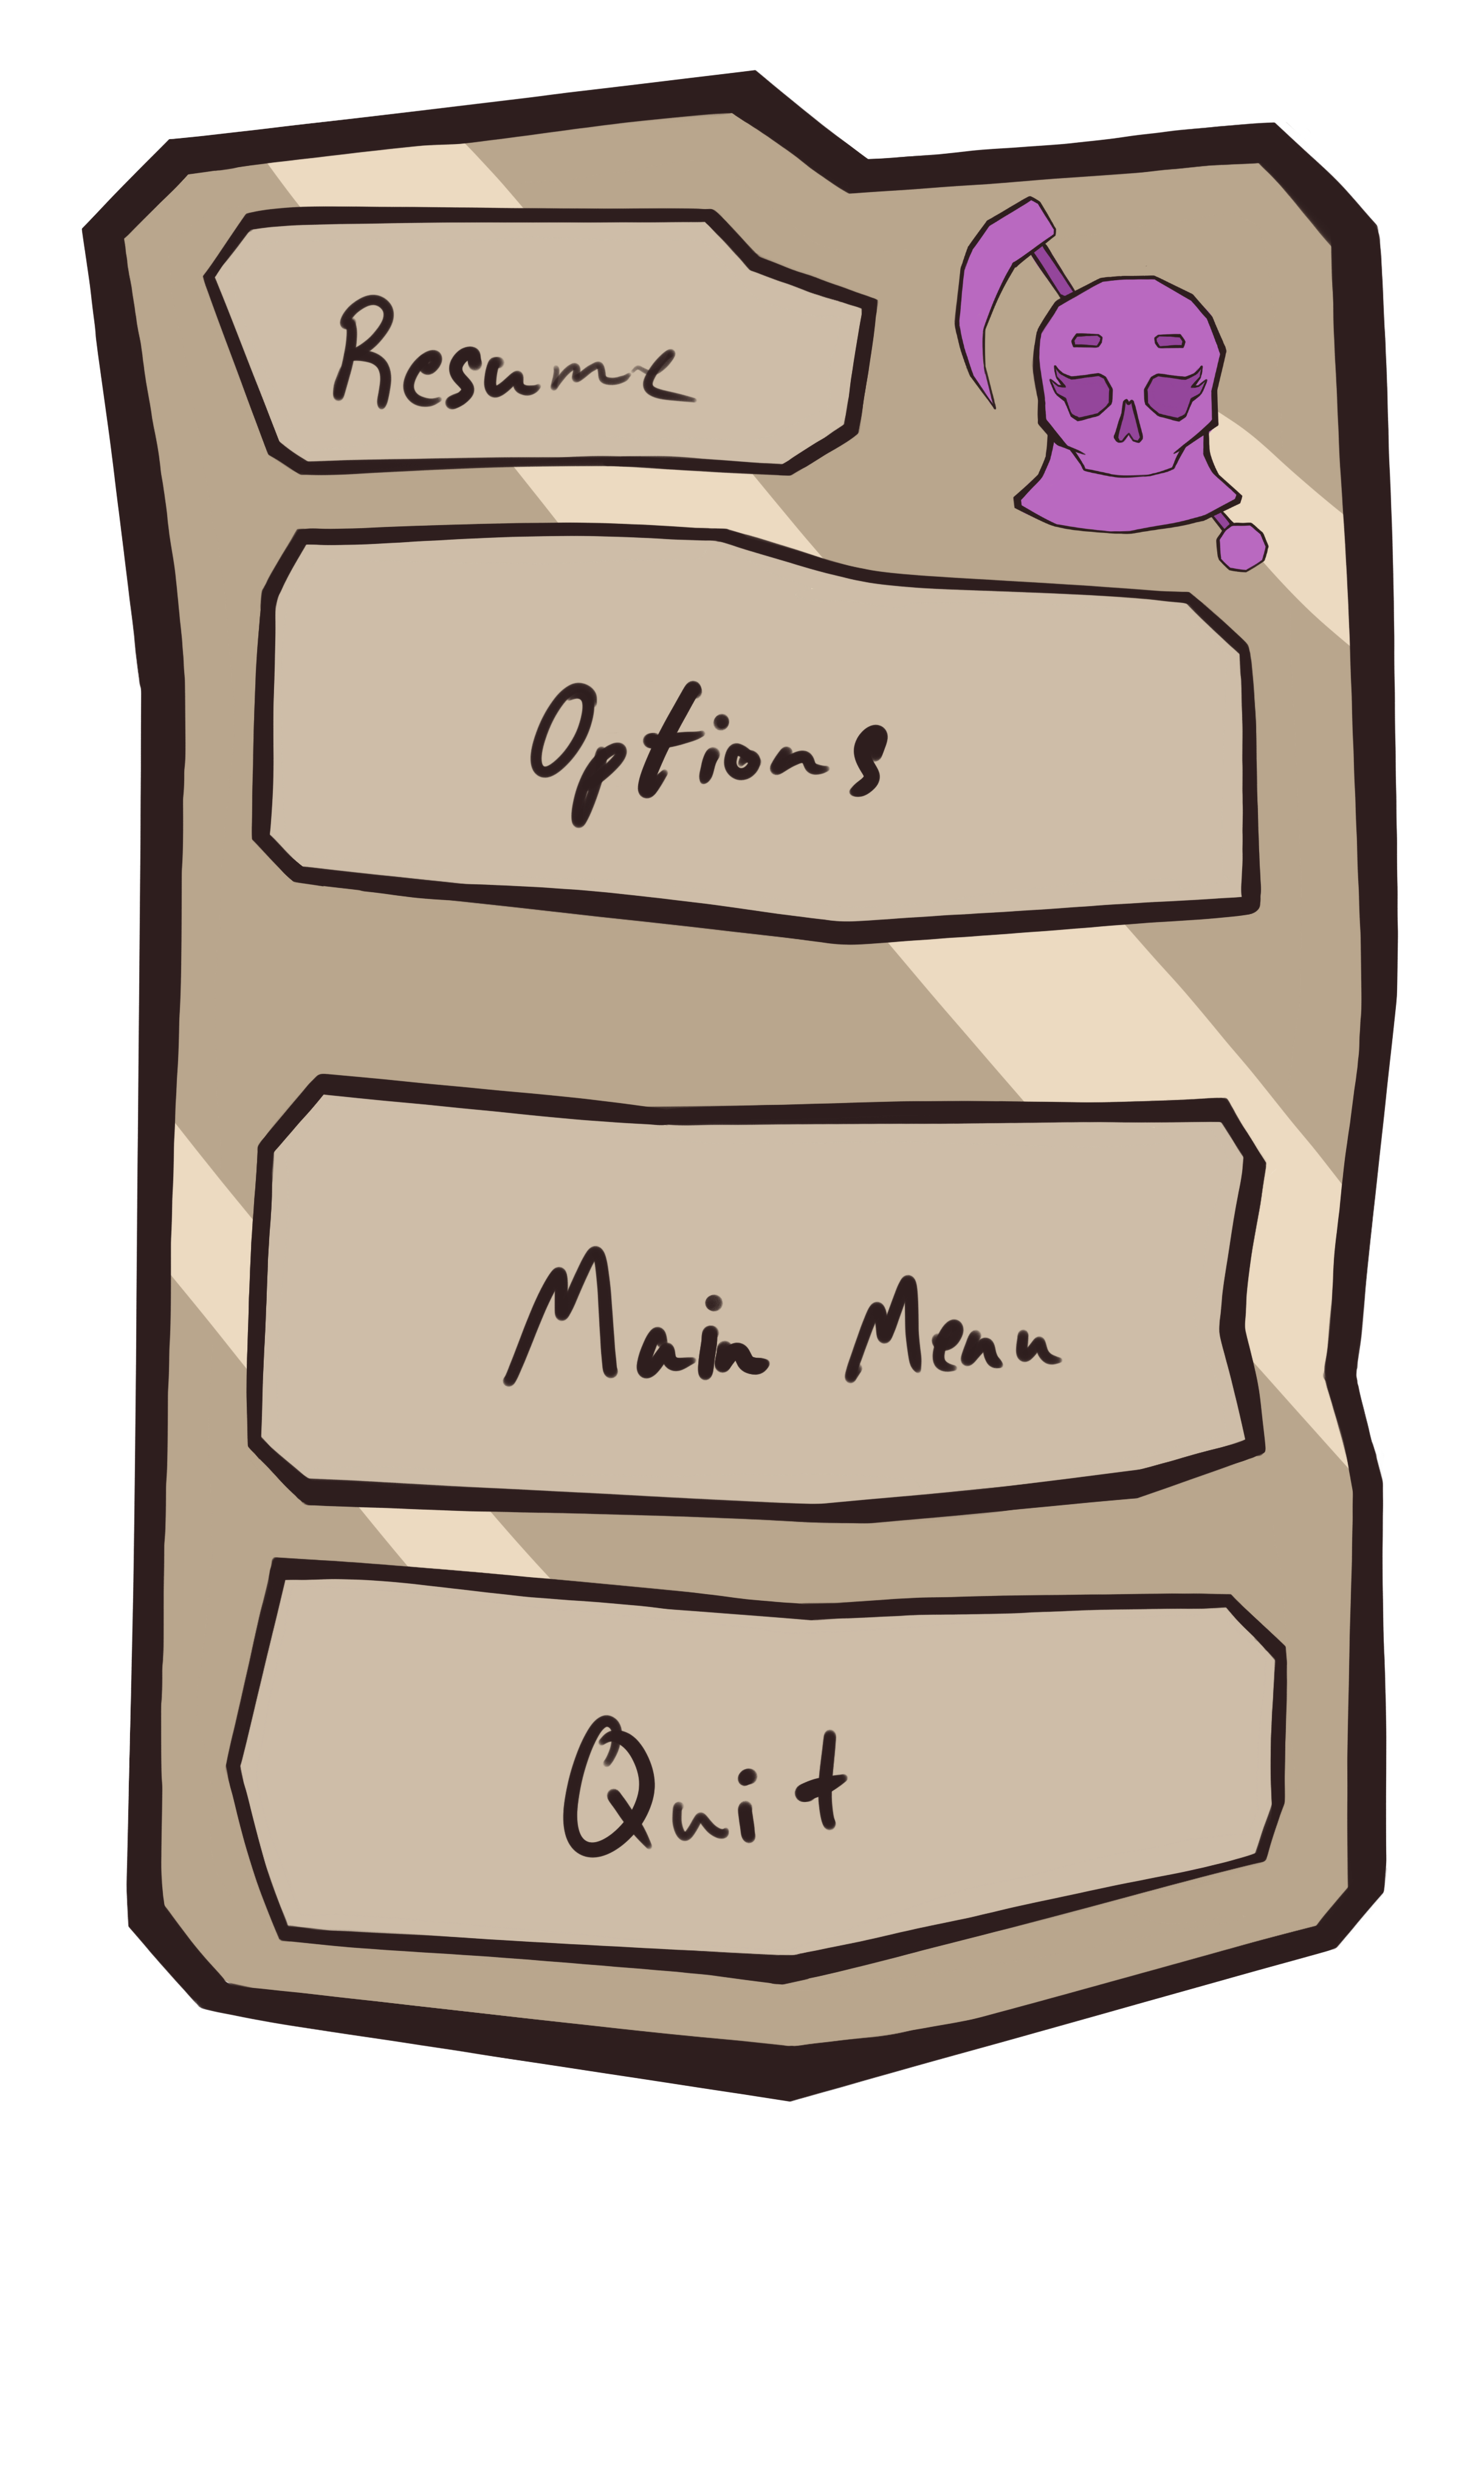 Resume
Options
Main Menu
Quit